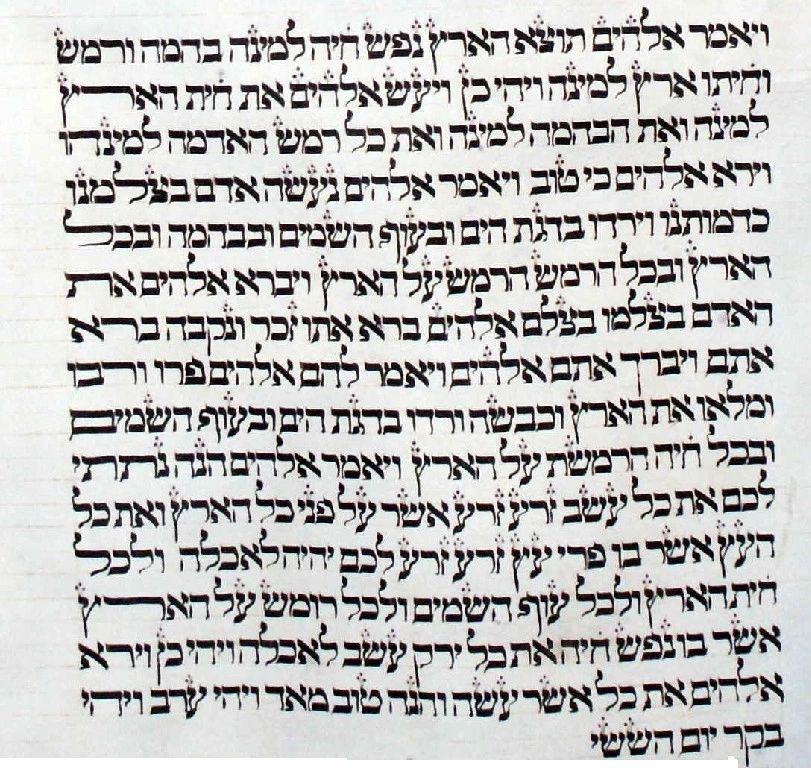 ויאמר אלהים תוצא הארץ נפש חיה למינה בהמה ורמש
וחיתו ארץ למינה ויהי כן ויעש אלהים את חית הארץ
למינה ואת הבהמה למינה ואת כל רמש האדמה למינהו
וירא אלהים כי טוב ויאמר אלהים נעשה אדם בצלמנו
כדמותנו וירדו בדגת הים ובעוף השמים ובבהמה ובכל
הארץ ובכל הרמש הרמש על הארץ ויברא אלהים את
האדם בצלמו בצלם אלהים ברא אתו זכר ונקבה ברא
אתם ויברך אתם אלהים ויאמר להם אלהים פרו ורבו
ומלאו את הארץ וכבשה ורדו בדגת הים ובעוף השמים
ובכל חיה הרמשת על הארץ ויאמר אלהים הנה נתתי
לכם את כל עשב זרע זרע אשר על פני כל הארץ ואת כל
העץ אשר בו פרי עץ זרע זרע לכם יהיה לאכלה ולכל
חית הארץ ולכל עוף השמים ולכל רומש על הארץ
אשר בו נפש חיה את כל ירק עשב לאכלה ויהי כן וירא
אלהים את כל אשר עשה והנה טוב מאד ויהי ערב ויהי
בקר יום הששי